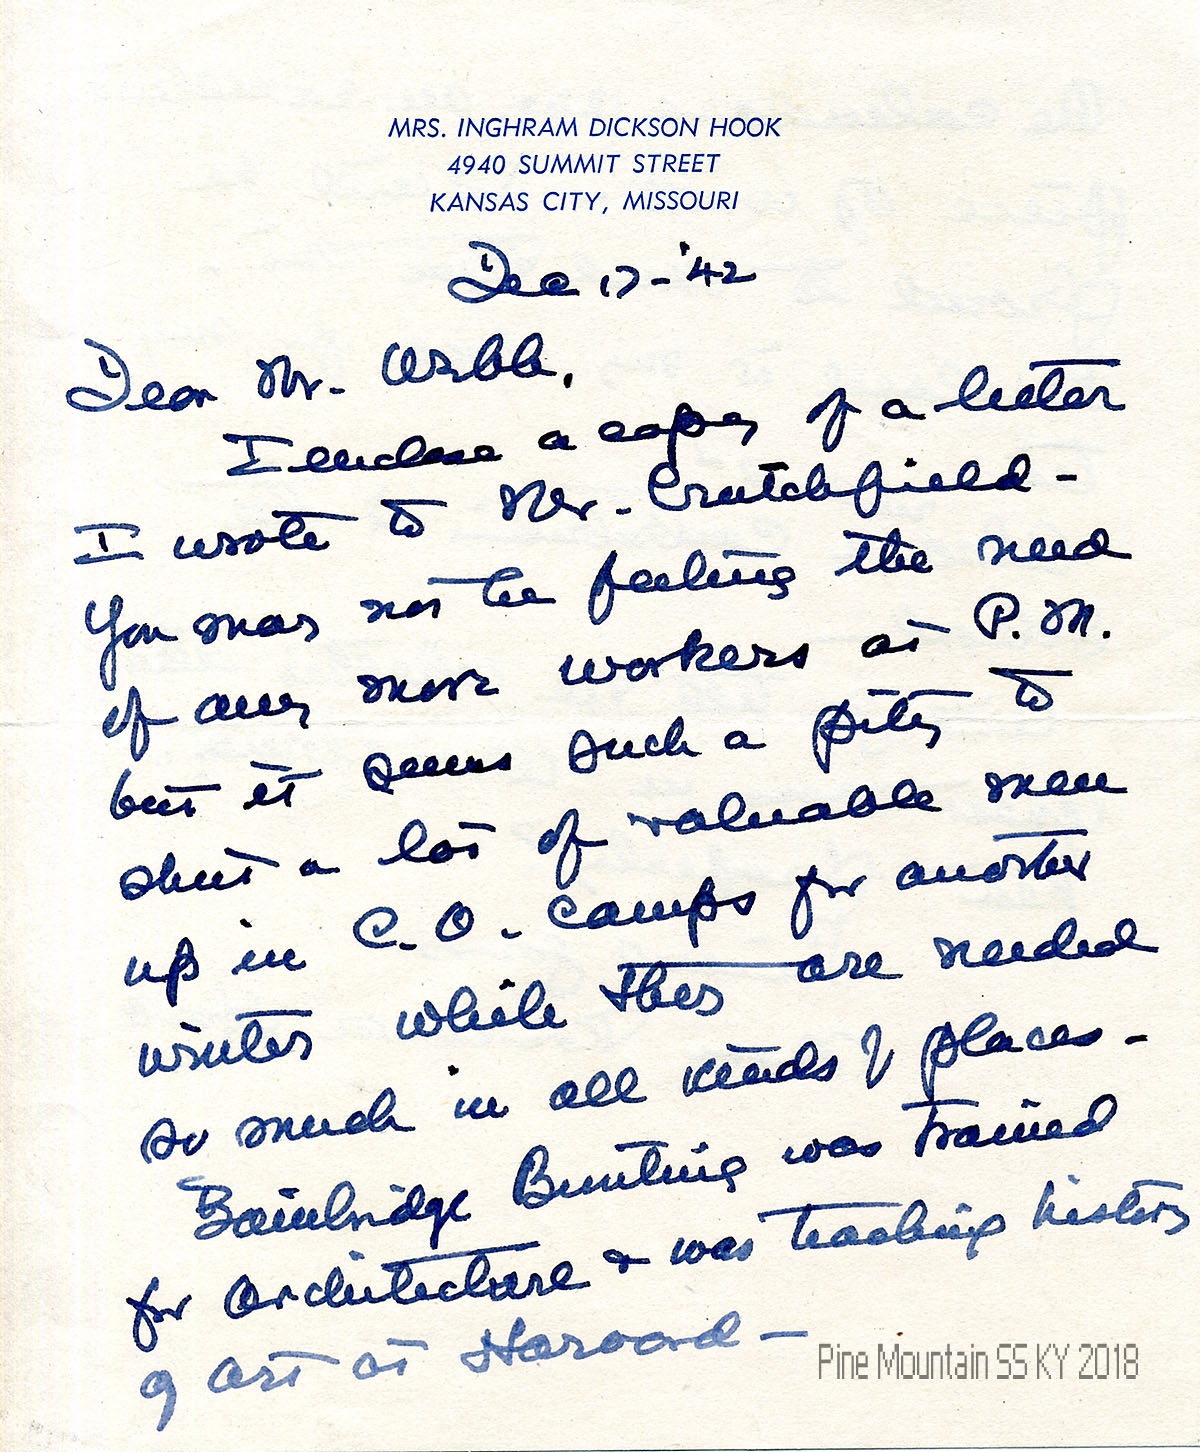 MRS. INGHRAM DICKSON HOOK
4940 SUMMIT STREET
KANSAS CITY, MISSOURI
Dec 17 - '42
Dear Mr. Webb,
I enclose a copy of a letter
I wrote to Mr. Crutchfield -
You may not be feeling the need
of any more workers at P. M.
but it seems such a pity to
shut a lot of valuable men
up in C. O. camps for another
winter while they are needed
so much in all kinds of places -
Bainbridge Bunting was trained
for architecture & was teaching history
of art at Harvard -
Pine Mountain SS KY 2018